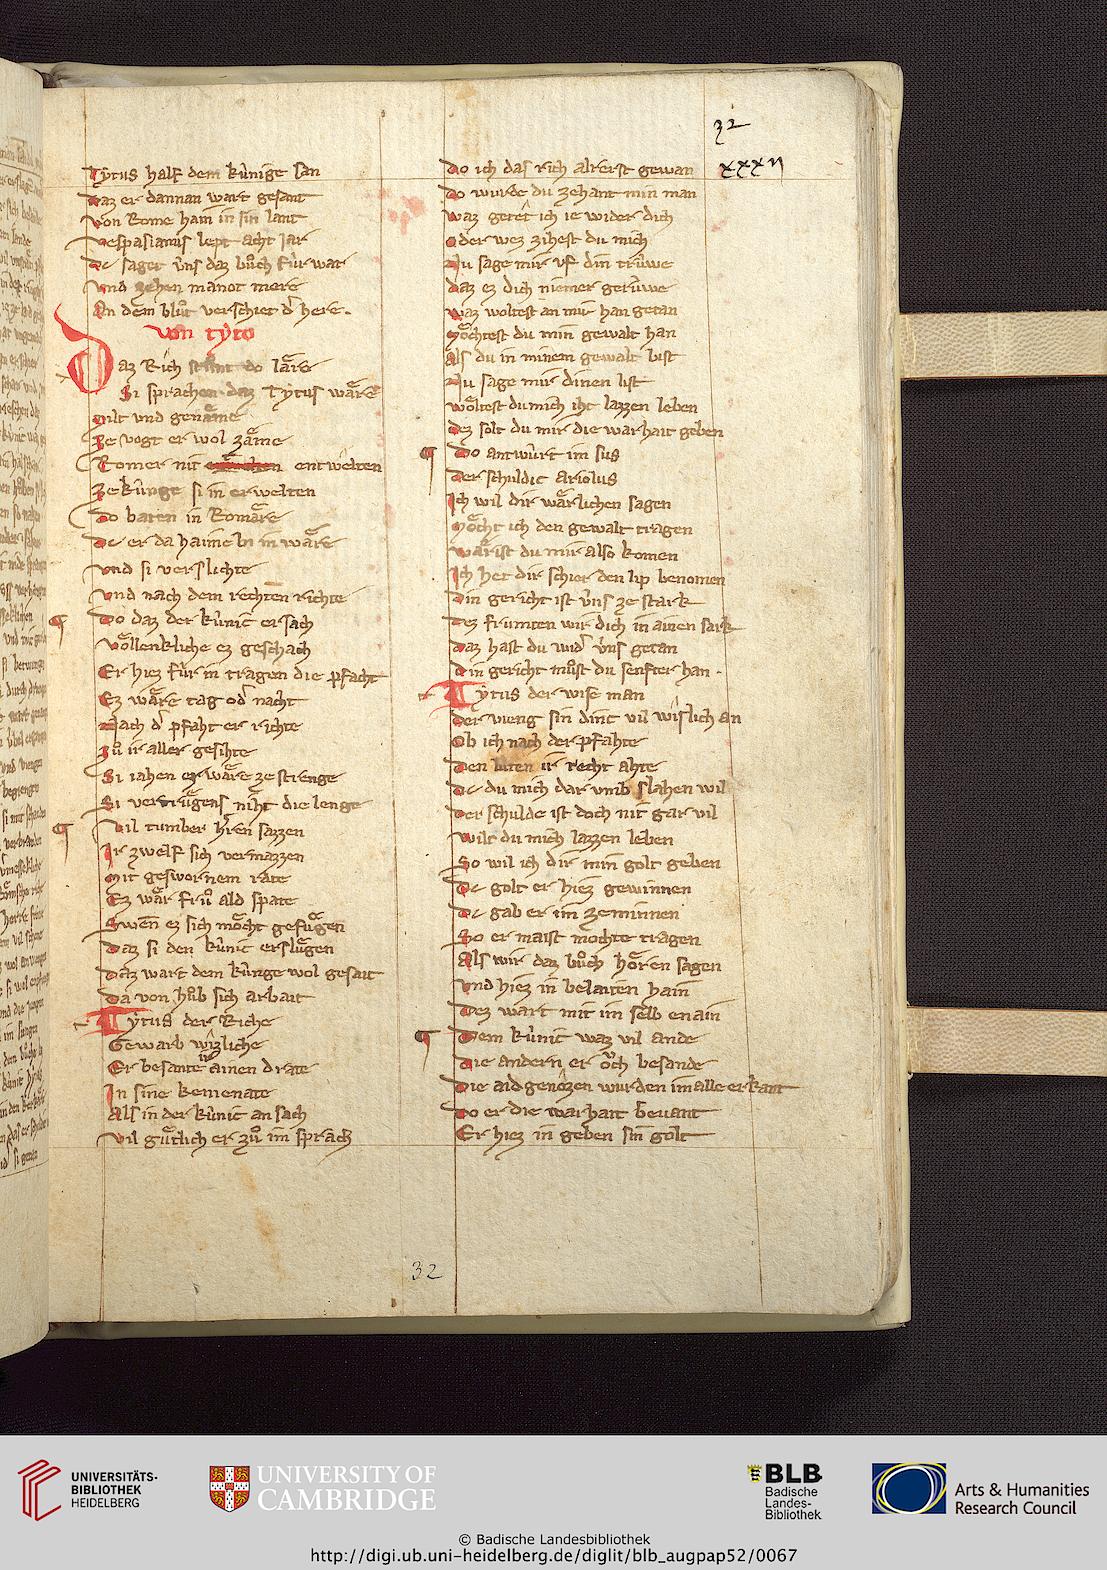 32
xxxij
Tytus half dem künige san
Daz er dannan wart gesant
von Rome haim in sin lant
vespasianus lept acht iar
Dc saget üns daz bůch für war
Und zehen manot mere
An dem blůt verschiet d here.
von tyto
Daz Rich stůnt do läre
Si sprachen daz Tytus wäre
milt und genäme
Ze vogt er wol zäme
Romer nit entwelten
Ze künge si in erwelten
Do baten in Romäre
Dc er da haime bi in wäre
Und si verslichte
Und nach dem rechten richte
Do daz der künic ersach
völlenkliche ez geschach
Er hiez für in tragen die pfacht
Ez wäre tag od nacht
Nach d pfaht er richte
Zů ir aller gesihte
Si iahen er wäre ze strenge
Si vertrügens niht die lenge
vil tumber hren sazzen
Ir zwelf sich vermazzen
Mit geswornem rate
Ez wär frů ald spate
Swen ez sich möcht gefügen
Daz si den künic erslügen
Daz wart dem künge wol gesait
Da von hůb sich arbait
Tytus der Riche
Gewarb wizliche
Er besante ir ainen drate
In sine kemenate
Als in der künic an sach
vil gütlich er zů im sprach
Do ich das rich alrerst gewan
Do wurde du zehant min man
waz getet ich ie wider dich
Oder wez zihest du mich
Nu sage mir uf din trüwe
Daz ez dich niemer gerüwe
waz woltest an mir han getan
Möchtest du min gewalt han
Als du in minem gewalt bist
Nu sage mir dinen list
wöltest du mich iht lazzen leben
Dez solt du mir die warhait geben
Do antwurt im sus
Der schuldic ariolus
Ich wil dir wärlichen sagen
Möcht ich den gewalt tragen
wärist du mir also komen
Ich het dir schier den lip benomen
Din gericht ist üns ze stark
Dez frumten wir dich in ainen sark
Daz hast du wid üns getan
Din gericht můst du senfter han.
Tytus der wise man
Der vieng sin dinc vil wislich an
Ob ich nach der pfahte
Den lüten ir recht ahte
Dc du mich dar umb slahen wil
Der schulde ist doch nit gar vil
wilt du mich lazzen leben
So wil ich dir min golt geben
Dc golt er hiez gewinnen
Dc gab er im ze minnen
So er maist mochte tragen
Als wir daz bůch hören sagen
Und hiez in belaiten hain
Dez wart mit im selb enain
Dem künic waz vil ande
Die andern er öch besande
Die aidgenözen wurden im alle erkant
Do er die warhait bevant
Er hiez in geben sin golt
32
UNIVERSITÄTS-
BIBLIOTHEK
HEIDELBERG
UNIVERSITY OF
CAMBRIDGE
BLB
Badische
Landes-
Bibliothek
Arts & Humanities
Research Council
© Badische Landesbibliothek
http://digi.ub.uni-heidelberg.de/diglit/blb_augpap52/0067